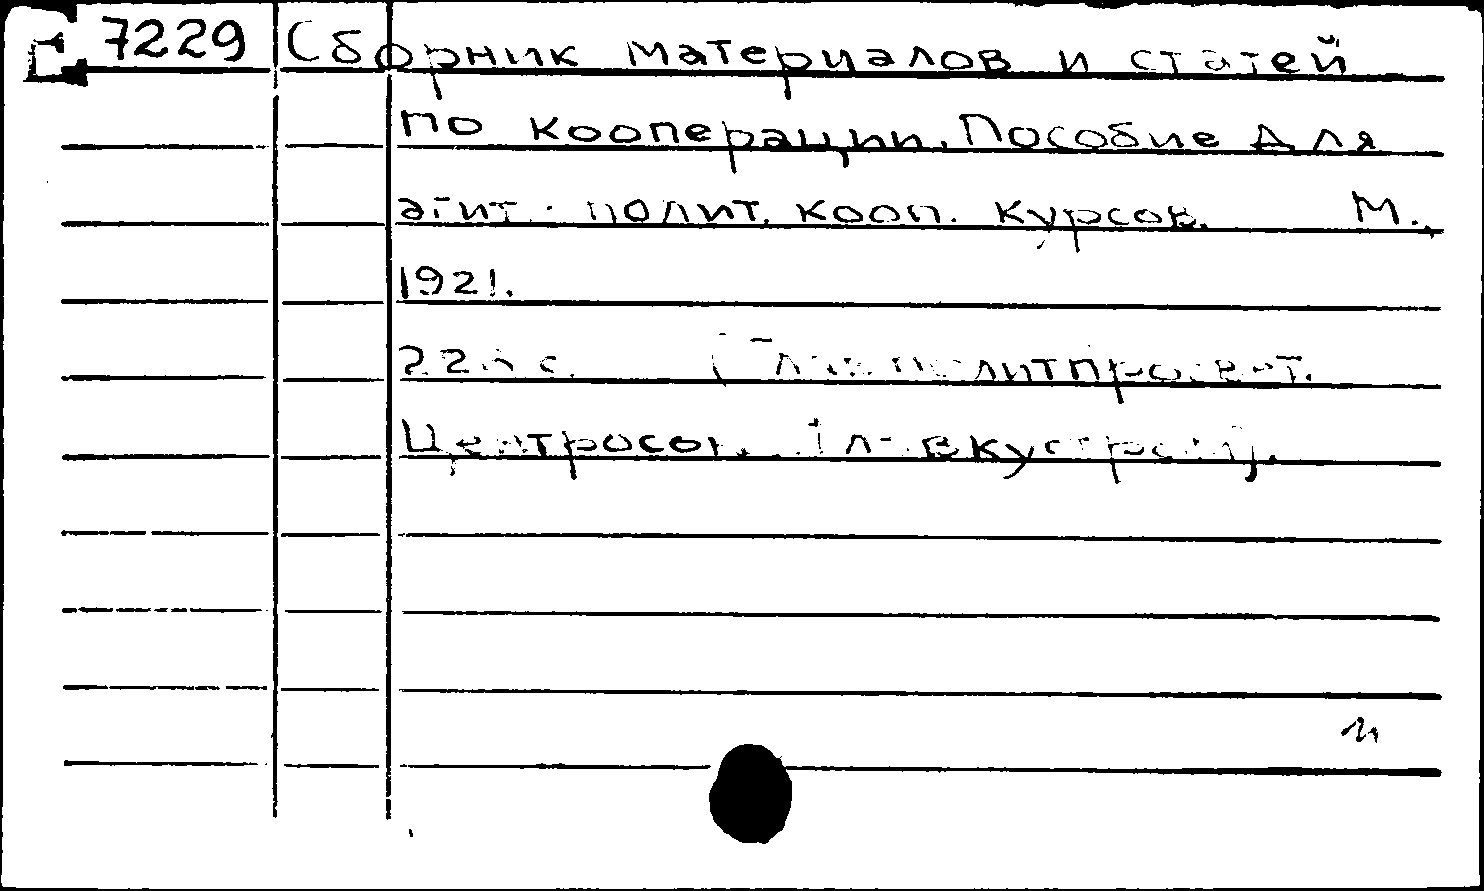 Е 7229 Сборник материалов и статей
по кооперации. Пособие для
агит.-полит. кооп. курсов. М.,
1921.
с. (Главполитпросвет.
Центросоюз. Главкустпром).